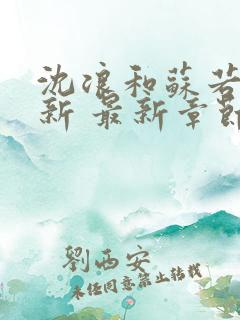 沈浪和蘇若
新 最新章節
劉西安
未经同意禁止转载